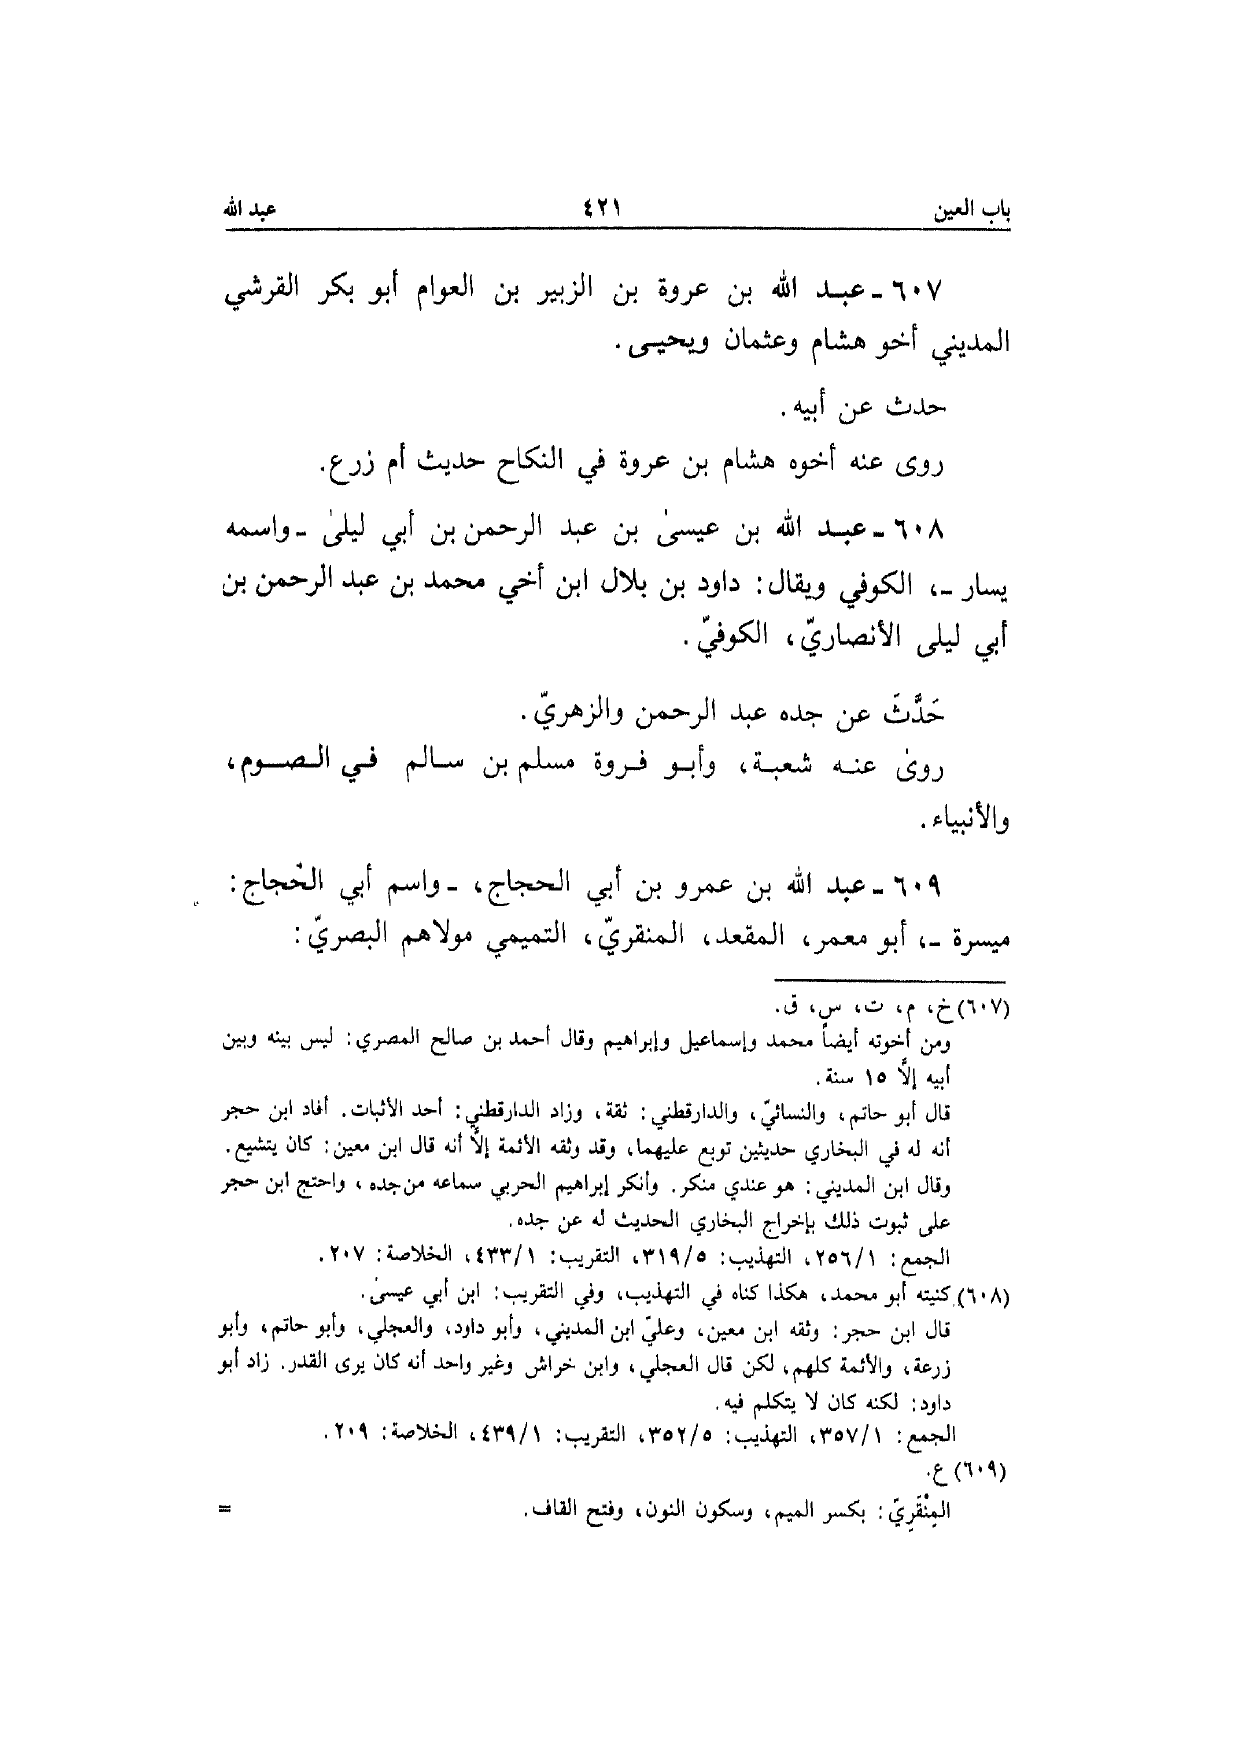 باب العين ٤٢١ عبد الله
٦٠٧ - عبـد الله بن عروة بن الزبير بن العوام أبو بكر القرشي
المديني أخو هشام وعثمان ويحيـى .
حدث عن أبيه .
روى عنه أخوه هشام بن عروة في النكاح حديث أم زرع.
٦٠٨ - عبـد الله بن عيسىٰ بن عبد الرحمن بن أبي ليلىٰ - واسمه
يسار -، الكوفي ويقال: داود بن بلال ابن أخي محمد بن عبد الرحمن بن
أبي ليلى الأنصاريّ، الكوفيّ .
حَدَّثَ عن جده عبد الرحمن والزهريّ .
روىٰ عنـه شعبـة، وأبـو فـروة مسلم بن سـالم فـي الـصـوم،
والأنبياء .
٦٠٩ - عبد الله بن عمرو بن أبي الحجاج، - واسم أبي الحجاج:
ميسرة -، أبو معمر، المقعد، المنقريّ، التميمي مولاهم البصريّ:
(٦٠٧) خ، م، ت، س، ق.
ومن أخوته أيضاً محمد وإسماعيل وإبراهيم وقال أحمد بن صالح المصري: ليس بينه وبين
أبيه إلاَّ ١٥ سنة.
قال أبو حاتم، والنسائيّ، والدارقطني: ثقة، وزاد الدارقطني: أحد الأثبات. أفاد ابن حجر
أنه له في البخاري حديثين توبع عليهما، وقد وثقه الأئمة إلاَّ أنه قال ابن معين: كان يتشيع.
وقال ابن المديني: هو عندي منكر. وأنكر إبراهيم الحربي سماعه من جده، واحتج ابن حجر
على ثبوت ذلك بإخراج البخاري الحديث له عن جده.
الجمع: ٢٥٦/١، التهذيب: ٣١٩/٥، التقريب: ٤٣٣/١، الخلاصة: ٢٠٧.
(٦٠٨) كنيته أبو محمد، هكذا كناه في التهذيب، وفي التقريب: ابن أبي عيسىٰ.
قال ابن حجر: وثقه ابن معين، وعليّ ابن المديني، وأبو داود، والعجلي، وأبو حاتم، وأبو
زرعة، والأئمة كلهم، لكن قال العجلي، وابن خراش وغير واحد أنه كان يرى القدر. زاد أبو
داود: لكنه كان لا يتكلم فيه.
الجمع: ٣٥٧/١، التهذيب: ٣٥٢/٥، التقريب: ٤٣٩/١، الخلاصة: ٢٠٩.
(٦٠٩) ع.
المِنْقَرِيّ: بكسر الميم، وسكون النون، وفتح القاف. =